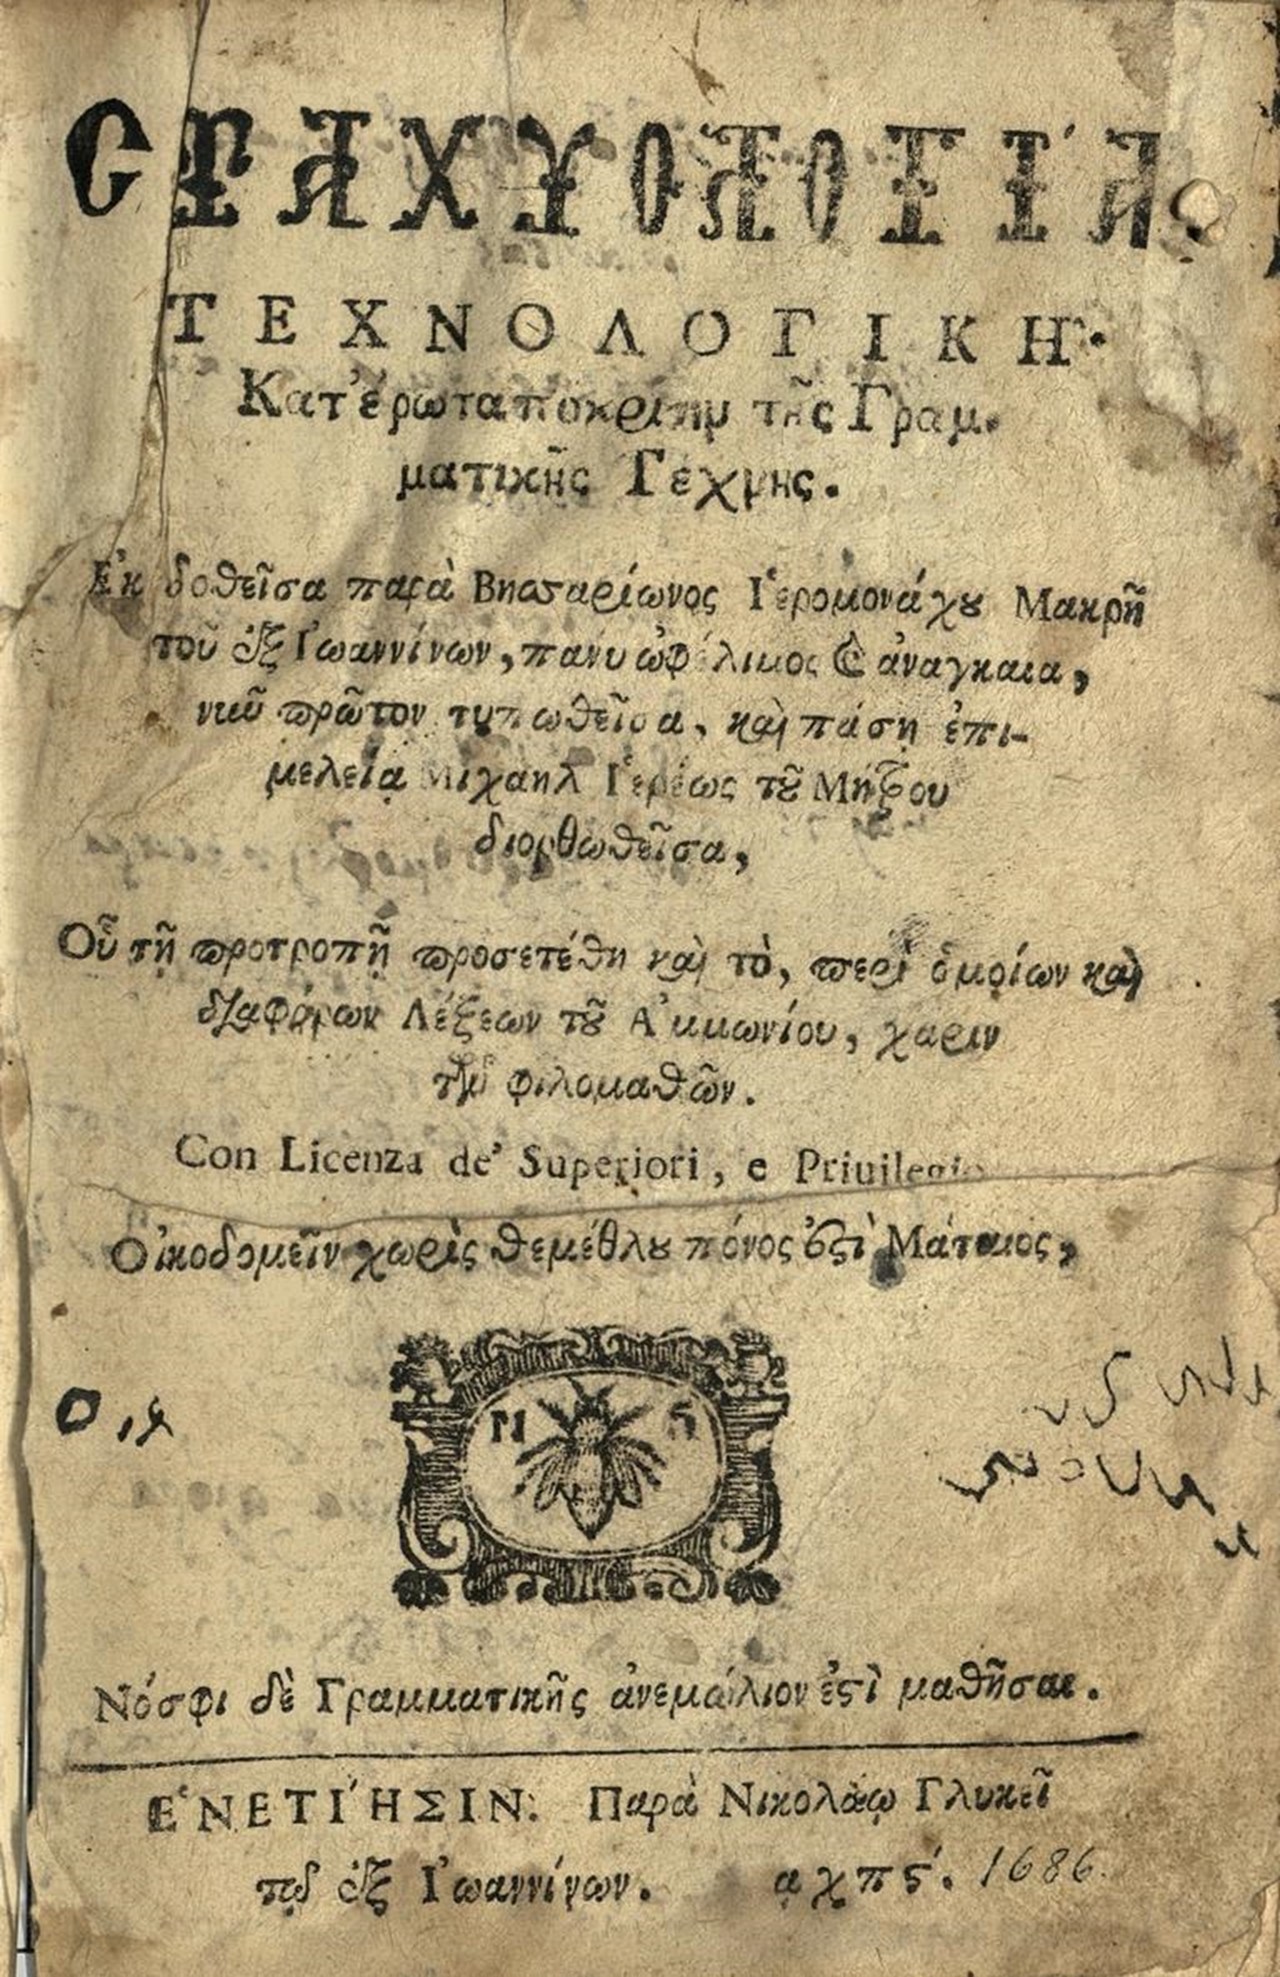 ϹΤΑΧΥΟΛΟΓΙΆ
ΤΕΧΝΟΛΟΓΙΚΉ.
Κατ' ἐρωταπόκρισιν τῆς Γραμ.
ματικῆς Τέχνης.
Ἐκδοθεῖσα παρὰ Βησσαρίωνος Ἱερομονάχου Μακρῆ
τοῦ ἐξ Ἰωαννίνων, πανυ ὠφέλιμος καὶ ἀναγκαια,
νιῦ πρῶτον τυπωθεῖσα, καὶ πάσῃ ἐπι-
μελείᾳ Μιχαηλ Ἱερέως τοῦ Μήτρου
διορθωθεῖσα,
Οὗ τῇ προτροπῇ προσετέθη καὶ τὸ, περὶ ὁμοίων καὶ
διαφόρων Λέξεων τοῦ Ἀμμωνίου, χαριν
τῶν φιλομαθῶν.
Con Licenza de' Superiori, e Priuilegio
Οἰκοδομεῖν χωρὶς θεμέθλου πόνος ἐςὶ Μάταιος,
Ν Γ
Νόσφι δὲ Γραμματικῆς ἀνεμώλιον ἐςὶ μαθῆσαι.
ἘΝΕΤΊΗΣΙΝ: Παρὰ Νικολάῳ Γλυκεῖ
τῷ ἐξ Ἰωαννίνων. αχπϛ. 1686.